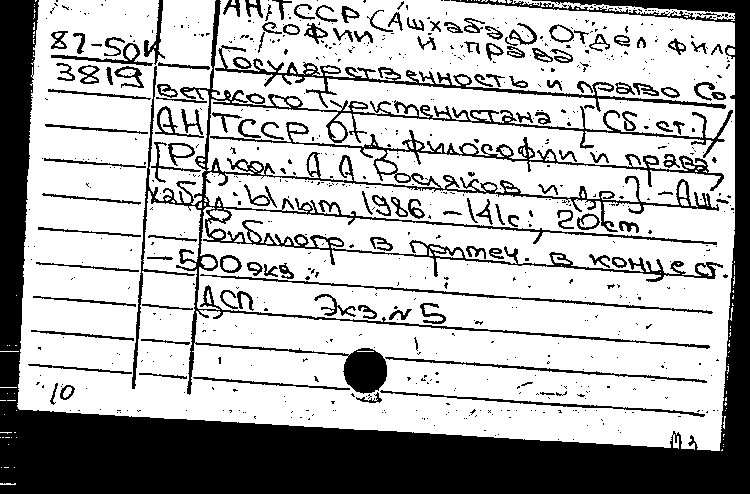 АН ТССР (Ашхабад). Отдел фило
софии и права.
87-50к
3819
Государственность и право Со-
ветского Туркменистана: [Сб. ст.] /
АН ТССР. Отд. философии и права;
[Редкол.: А.А. Росляков и др.] -Аш-
хабад: Ылым, 1986. -141с.; 20см.
Библиогр. в примеч. в конце ст.
-500экз.
ДСП. Экз. № 5
10